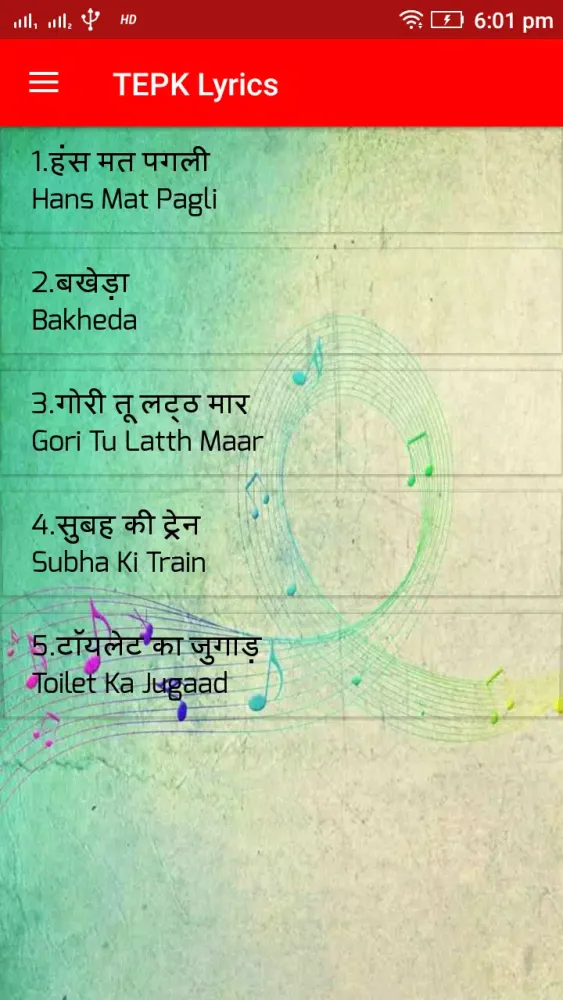 HD
6:01 pm
TEPK Lyrics
1.हंस मत पगली
Hans Mat Pagli
2.बखेड़ा
Bakheda
3.गोरी तू लट्ठ मार
Gori Tu Latth Maar
4.सुबह की ट्रेन
Subha Ki Train
5.टॉयलेट का जुगाड़
Toilet Ka Jugaad